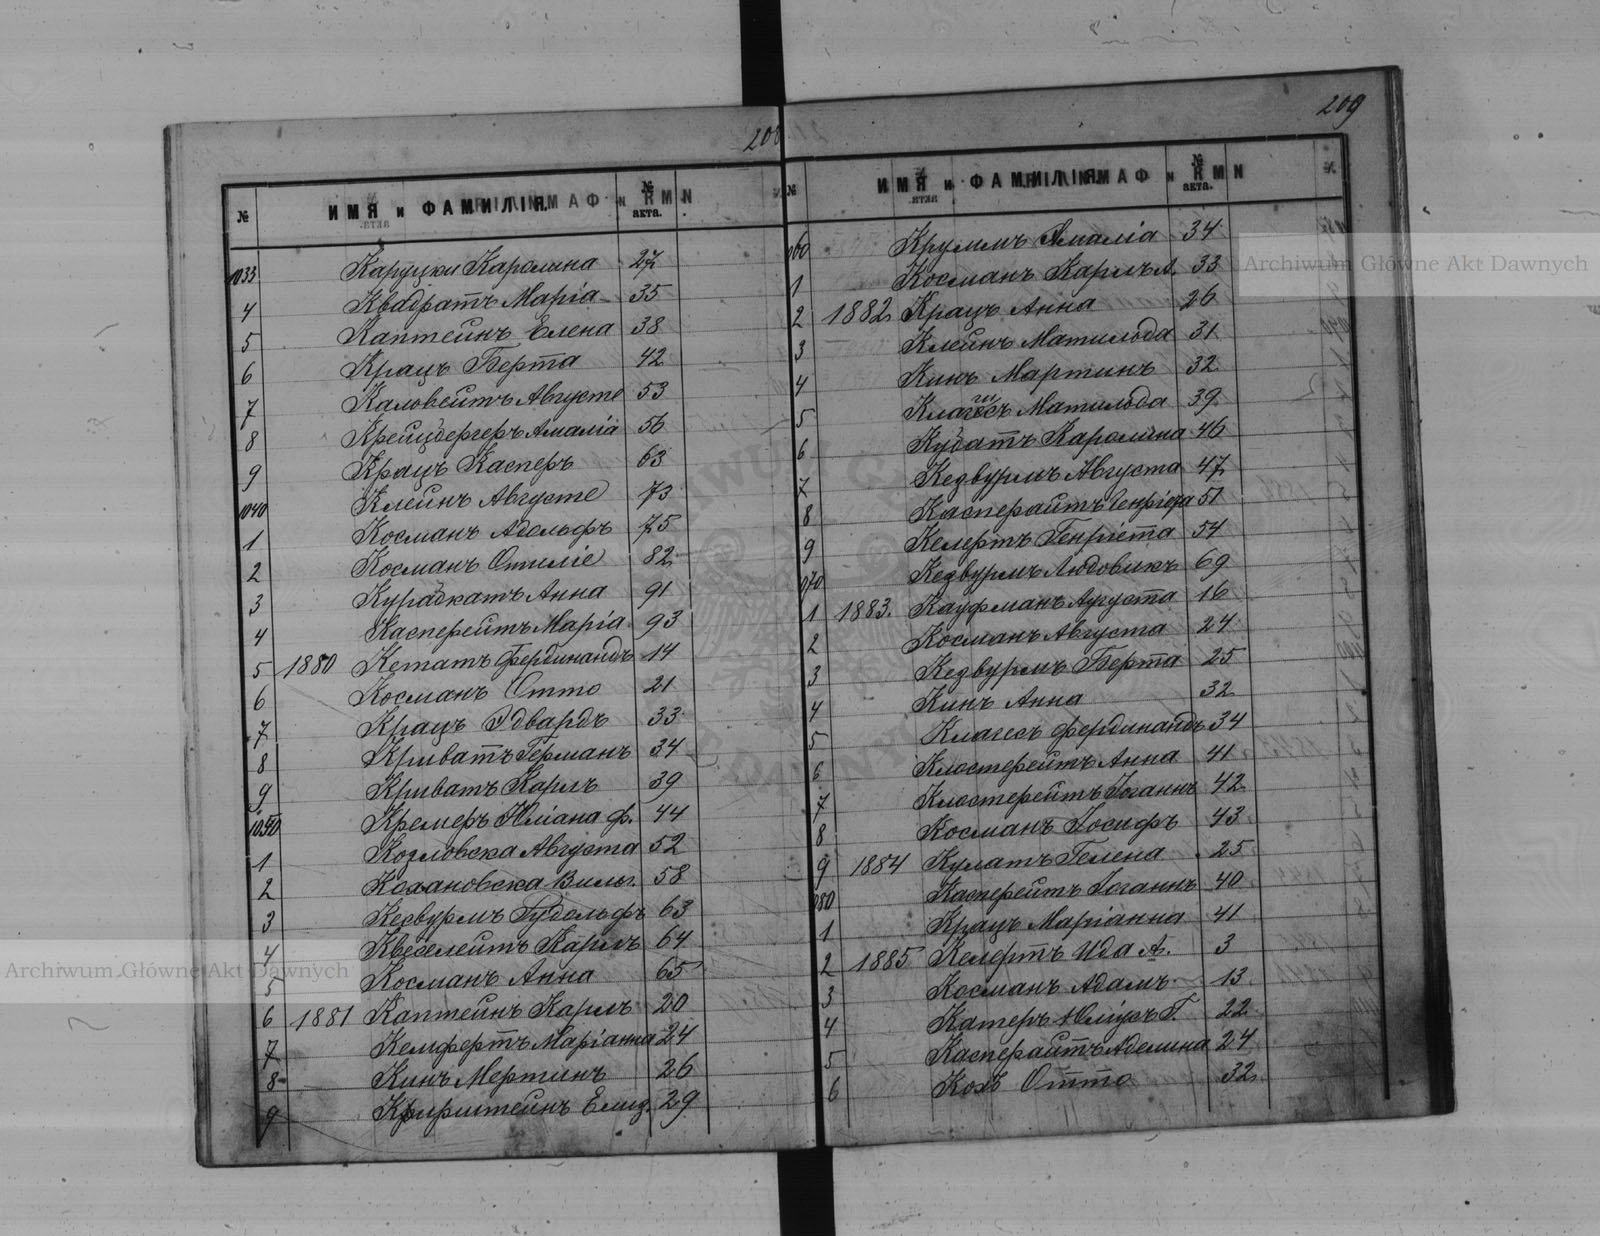 208
№ ИМЯ и ФАМИЛІЯ. № акта.
1033 Кардуки Каролина 27
4 Квадратъ Марія 35
5 Каптейнъ Елена 38
6 Крацъ Берта 42
7 Каловейтъ Августе 53
8 Крейцбергеръ Амалія 56
9 Крацъ Касперъ 63
1040 Клейнъ Августе 73
1 Косманъ Адольфъ 75
2 Косманъ Отиліе 82
3 Анна 91
4 Касперейтъ Марія 93
5 1880 Кетатъ Фердинандъ 14
6 Косманъ Отто 21
7 Крацъ Эдвардъ 33
8 Криватъ Германъ 34
9 Криватъ Карлъ 39
1050 Кремеръ Юліана Ф. 44
1 Козловска Августа 52
2 Кохановска Вильг. 58
3 Кезвурмъ Рудольфъ 63
4 Квеселейтъ Карлъ 64
5 Косманъ Анна 65
6 1881 Каптейнъ Карлъ 20
7 Кемфертъ Маріанна 24
8 Кинъ Мертинъ 26
9 Елиз. 29
209
№ ИМЯ и ФАМИЛІЯ. № акта.
060 Круммъ Амалія 34
1 Косманъ Карлъ А. 33
2 1882 Крацъ Анна 26
3 Клейнъ Матильда 31
4 Кинъ Мартинъ 32
5 Матильда 39
6 Кубатъ Каролина 46
7 Кезвурмъ Августа 47
8 Касперайтъ Генріета 51
9 Келертъ Генріета 54
070 Кезвурмъ Людовикъ 69
1 1883. Кауфманъ Августа 16
2 Косманъ Августа 24
3 Кезвурмъ Берта 25
4 Кинъ Анна 32
5 Клагесъ Фердинандъ 34
6 Клостерейтъ Анна 41
7 Клостерейтъ Іоганнъ 42
8 Косманъ Іосифъ 43
9 1884 Кулатъ Гелена 25
080 Касперейтъ Іоганнъ 40
1 Крацъ Маріанна 41
2 1885 Келертъ Ида А. 3
3 Косманъ Адамъ 13
4 Катеръ Юліусъ Г. 22
5 Касперайтъ Аделина 24
6 Кохъ Отто 32
Archiwum Główne Akt Dawnych
Archiwum Główne Akt Dawnych